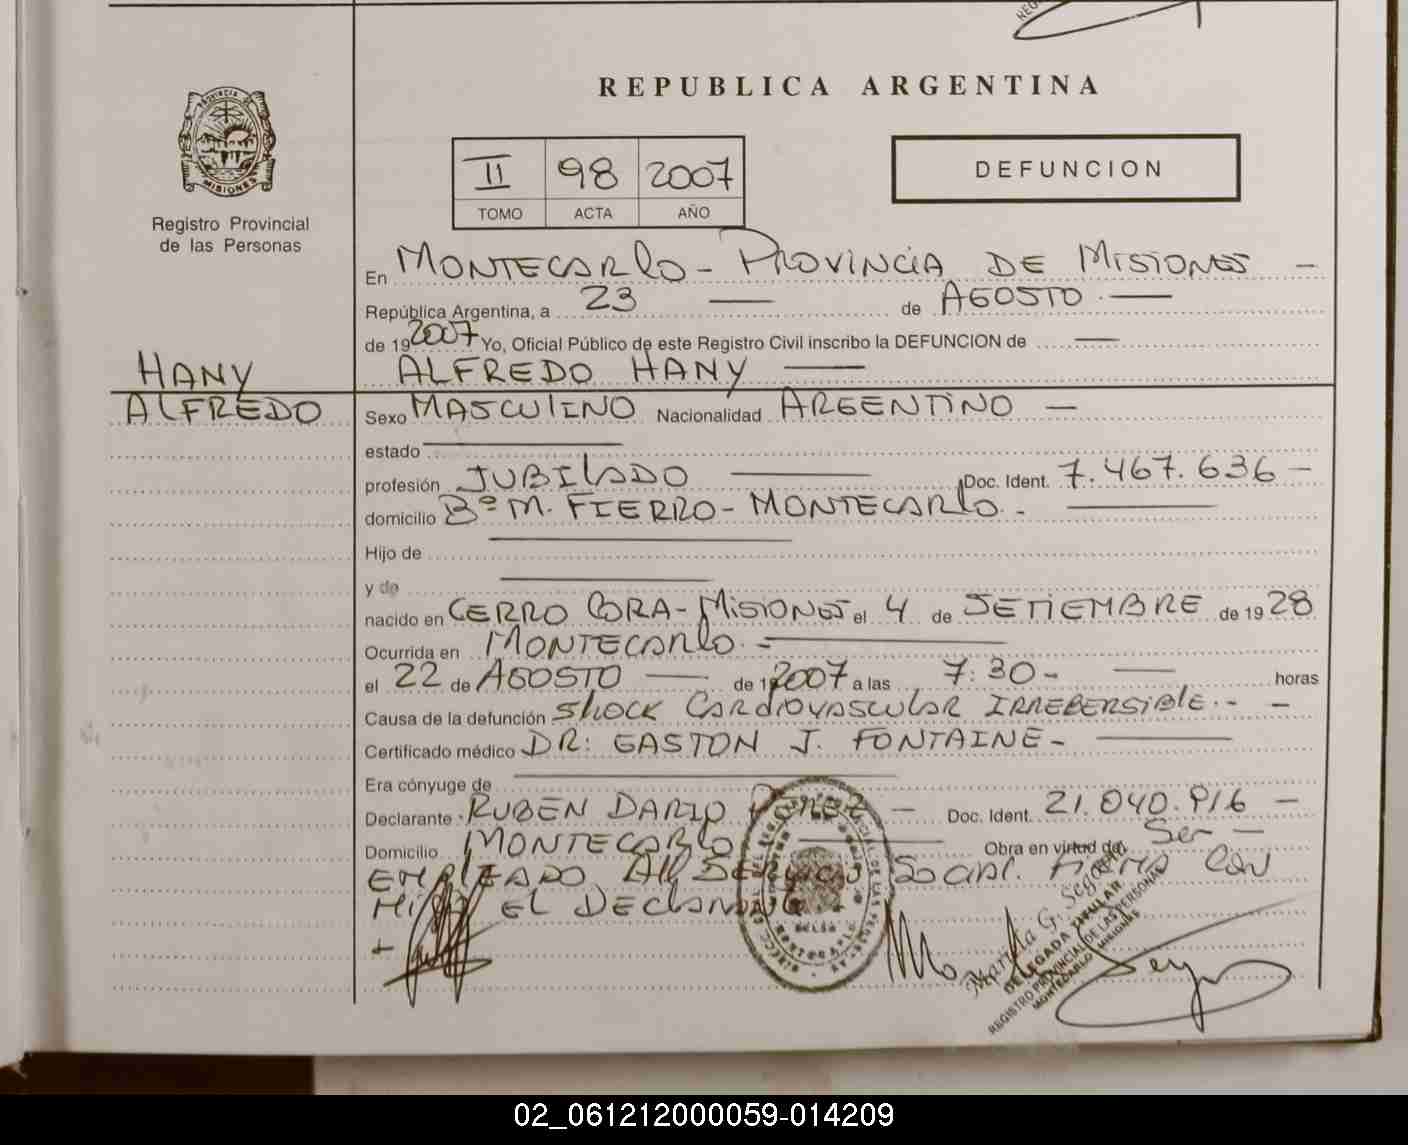 REPUBLICA ARGENTINA
PROVINCIA DE
MISIONES
Registro Provincial
de las Personas
II 98 2007
TOMO ACTA AÑO
DEFUNCION
En MONTECARLO - PROVINCIA DE MISIONES -
República Argentina, a 23 — de AGOSTO —
de 19 2007 Yo, Oficial Público de este Registro Civil inscribo la DEFUNCION de —
HANY
ALFREDO HANY —
ALFREDO
Sexo MASCULINO Nacionalidad ARGENTINO —
estado —
profesión JUBILADO — Doc. Ident. 7.467.636 -
domicilio Bº M. FIERRO - MONTECARLO. - —
Hijo de —
y de —
nacido en CERRO CORA - MISIONES el 4 de SETIEMBRE de 19 28
Ocurrida en MONTECARLO. - —
el 22 de AGOSTO — de 19 2007 a las 7:30 - — horas
Causa de la defunción SHOCK CARDIOVASCULAR IRREBERSIBLE. - -
Certificado médico DR: GASTON J. FONTAINE - —
Era cónyuge de —
Declarante RUBEN DARIO PEREZ — Doc. Ident. 21.040.916 -
Domicilio MONTECARLO — Obra en virtud de Ser -
EMPLEADO DEL SERVICIO SOCIAL. FIRMA CON
MIGO EL DECLARANTE
DELEGADA TITULAR
REGISTRO PROVINCIAL DE LAS PERSONAS
MONTECARLO MISIONES
02_061212000059-014209